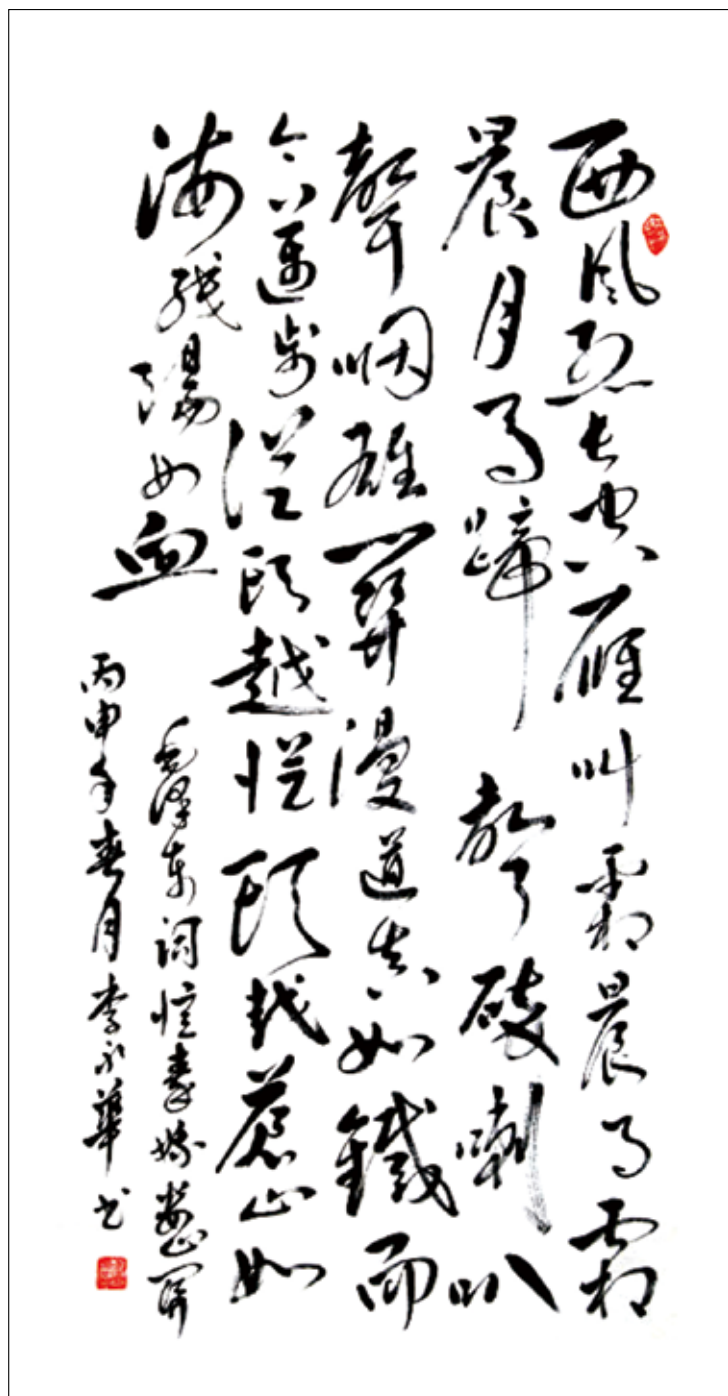 西風烈長空雁叫霜晨月霜
晨月馬蹄聲碎喇叭
聲咽雄關漫道真如鐵而
今邁步從頭越從頭越蒼山如
海殘陽如血
毛澤東詞憶秦娥婁山關
丙申年春月李永華书